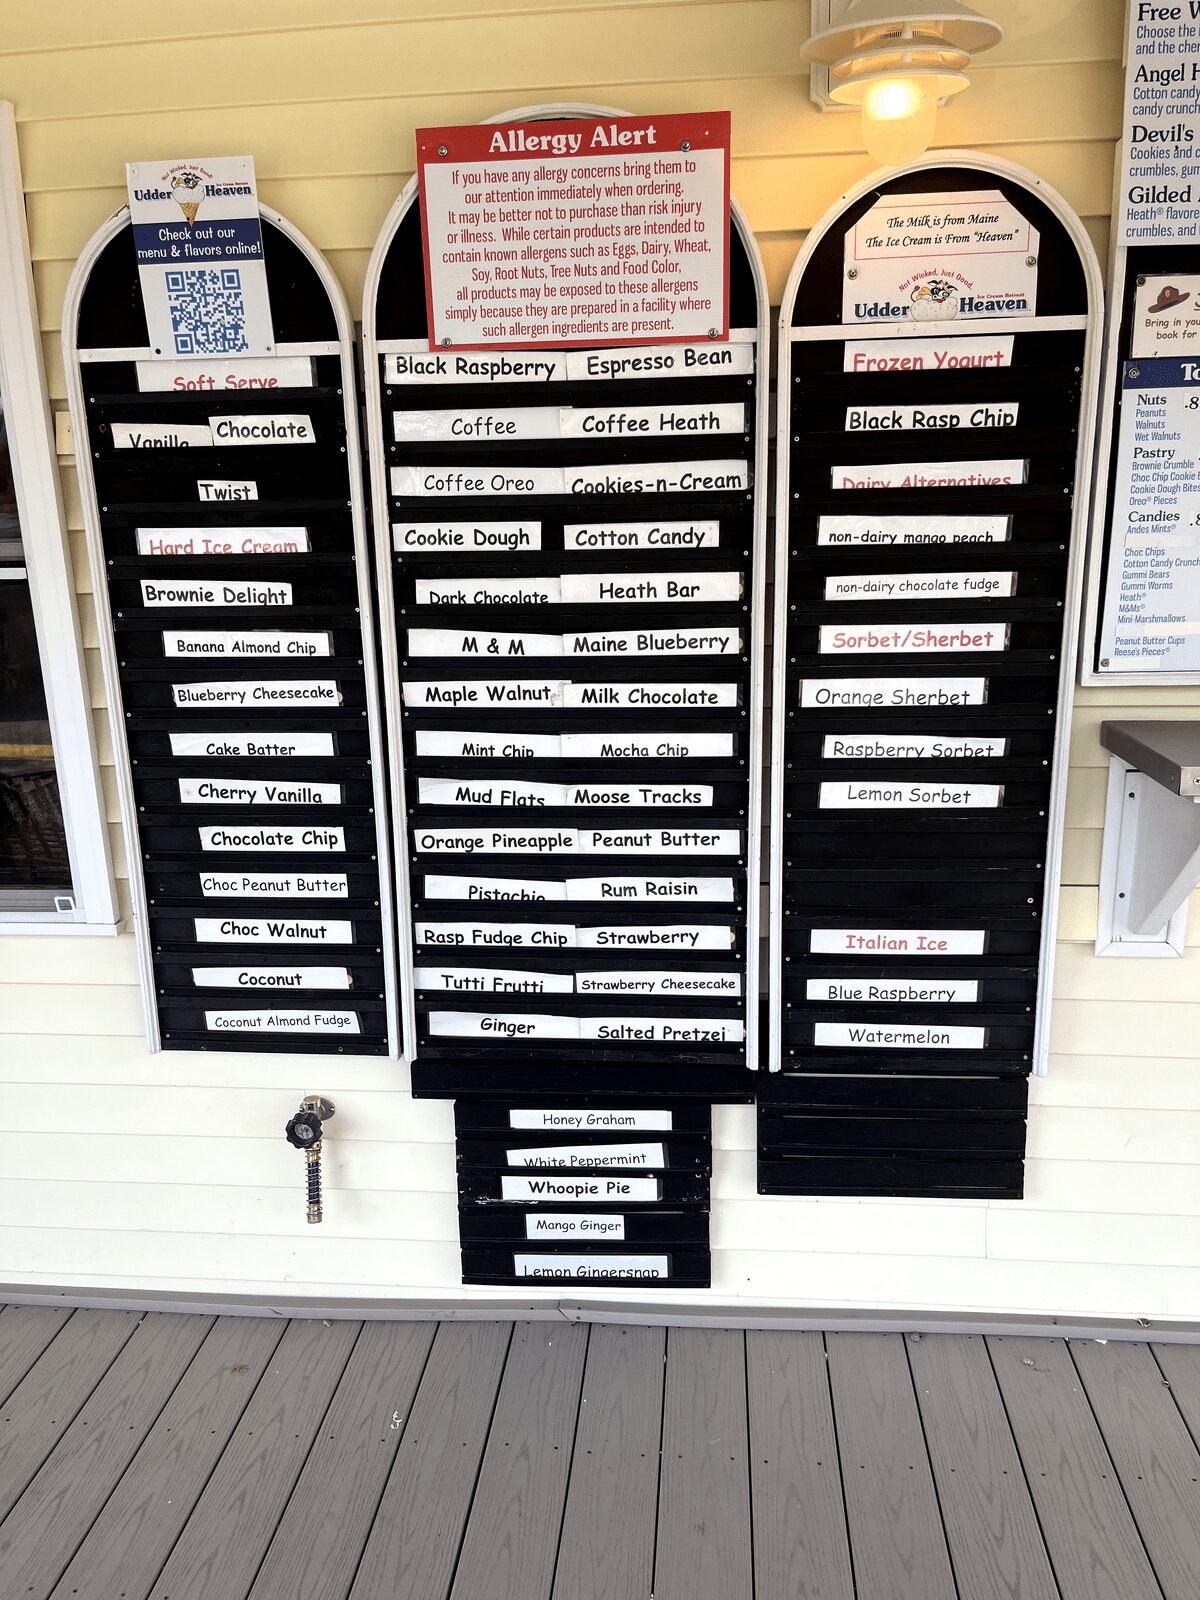 Not Wicked, Just Good.
Udder Heaven
Ice Cream Retreat
Check out our
menu & flavors online!
Soft Serve
Vanilla Chocolate
Twist
Hard Ice Cream
Brownie Delight
Banana Almond Chip
Blueberry Cheesecake
Cake Batter
Cherry Vanilla
Chocolate Chip
Choc Peanut Butter
Choc Walnut
Coconut
Coconut Almond Fudge
Allergy Alert
If you have any allergy concerns bring them to
our attention immediately when ordering.
It may be better not to purchase than risk injury
or illness. While certain products are intended to
contain known allergens such as Eggs, Dairy, Wheat,
Soy, Root Nuts, Tree Nuts and Food Color,
all products may be exposed to these allergens
simply because they are prepared in a facility where
such allergen ingredients are present.
Black Raspberry Espresso Bean
Coffee Coffee Heath
Coffee Oreo Cookies-n-Cream
Cookie Dough Cotton Candy
Dark Chocolate Heath Bar
M & M Maine Blueberry
Maple Walnut Milk Chocolate
Mint Chip Mocha Chip
Mud Flats Moose Tracks
Orange Pineapple Peanut Butter
Pistachio Rum Raisin
Rasp Fudge Chip Strawberry
Tutti Frutti Strawberry Cheesecake
Ginger Salted Pretzel
Honey Graham
White Peppermint
Whoopie Pie
Mango Ginger
Lemon Gingersnap
The Milk is from Maine
The Ice Cream is From "Heaven"
Not Wicked, Just Good.
Udder Heaven
Ice Cream Retreat
Frozen Yogurt
Black Rasp Chip
Dairy Alternatives
non-dairy mango peach
non-dairy chocolate fudge
Sorbet/Sherbet
Orange Sherbet
Raspberry Sorbet
Lemon Sorbet
Italian Ice
Blue Raspberry
Watermelon
Free W
Choose the
and the che
Angel H
Cotton candy
candy crunch
Devil's
Cookies and c
crumbles, gum
Gilded
Heath® flavore
crumbles, and
Bring in you
book for
To
Nuts .8
Peanuts
Walnuts
Wet Walnuts
Pastry
Brownie Crumble
Choc Chip Cookie
Cookie Dough Bites
Oreo® Pieces
Candies .8
Andes Mints®
Choc Chips
Cotton Candy Crunch
Gummi Bears
Gummi Worms
Heath®
M&Ms®
Mini-Marshmallows
Peanut Butter Cups
Reese's Pieces®